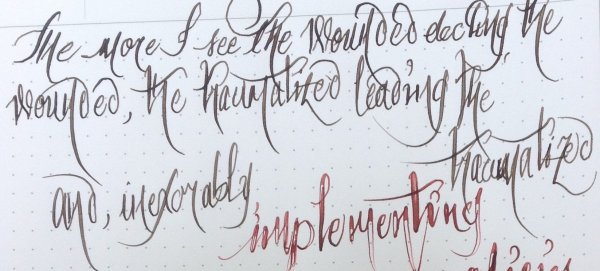 The more I see the wounded electing the
wounded, the traumatized leading the
traumatized
and, inexorably
implementing